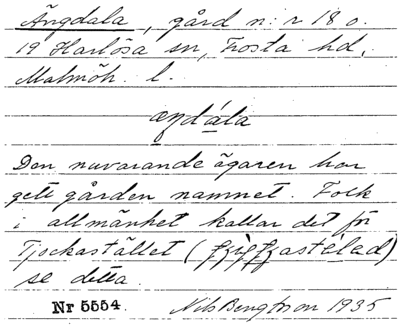 Ängdala, gård n:r 18 o.
19 Harlösa sn, Frosta hd,
Malmöh. l.
Den nuvarande ägaren har
gett gården namnet. Folk
i allmänhet kallar det för
Tjockastället
se detta.
Nr 5554. Nils Bengtsson 1935